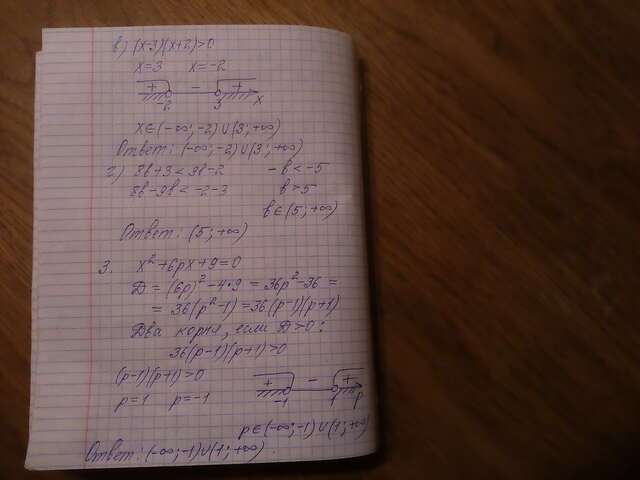 в) (x-3)(x+2)>0
x=3 x=-2
+ - +
-2 3 x
x∈(-∞;-2)∪(3;+∞)
Ответ: (-∞;-2)∪(3;+∞)
г) 8b+3<9b-2 -b<-5
8b-9b<-2-3 b>5
b∈(5;+∞)
Ответ: (5;+∞)
3. x²+6px+9=0
D=(6p)²-4·9=36p²-36=
=36(p²-1)=36(p-1)(p+1)
Два корня, если D>0:
36(p-1)(p+1)>0
(p-1)(p+1)>0 + - +
p=1 p=-1 -1 1 p
p∈(-∞;-1)∪(1;+∞)
Ответ: (-∞;-1)∪(1;+∞).